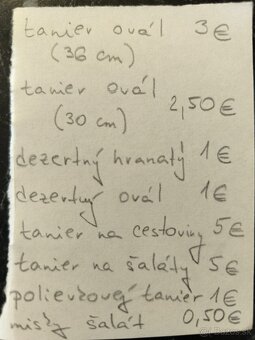 tanier ovál 3€
(36 cm)
tanier ovál
2,50€
(30 cm)
dezertný hranatý 1€
dezertný ovál 1€
tanier na cestoviny 5€
tanier na šaláty 5€
polievkovej tanier 1€
misky šalát 0,50€